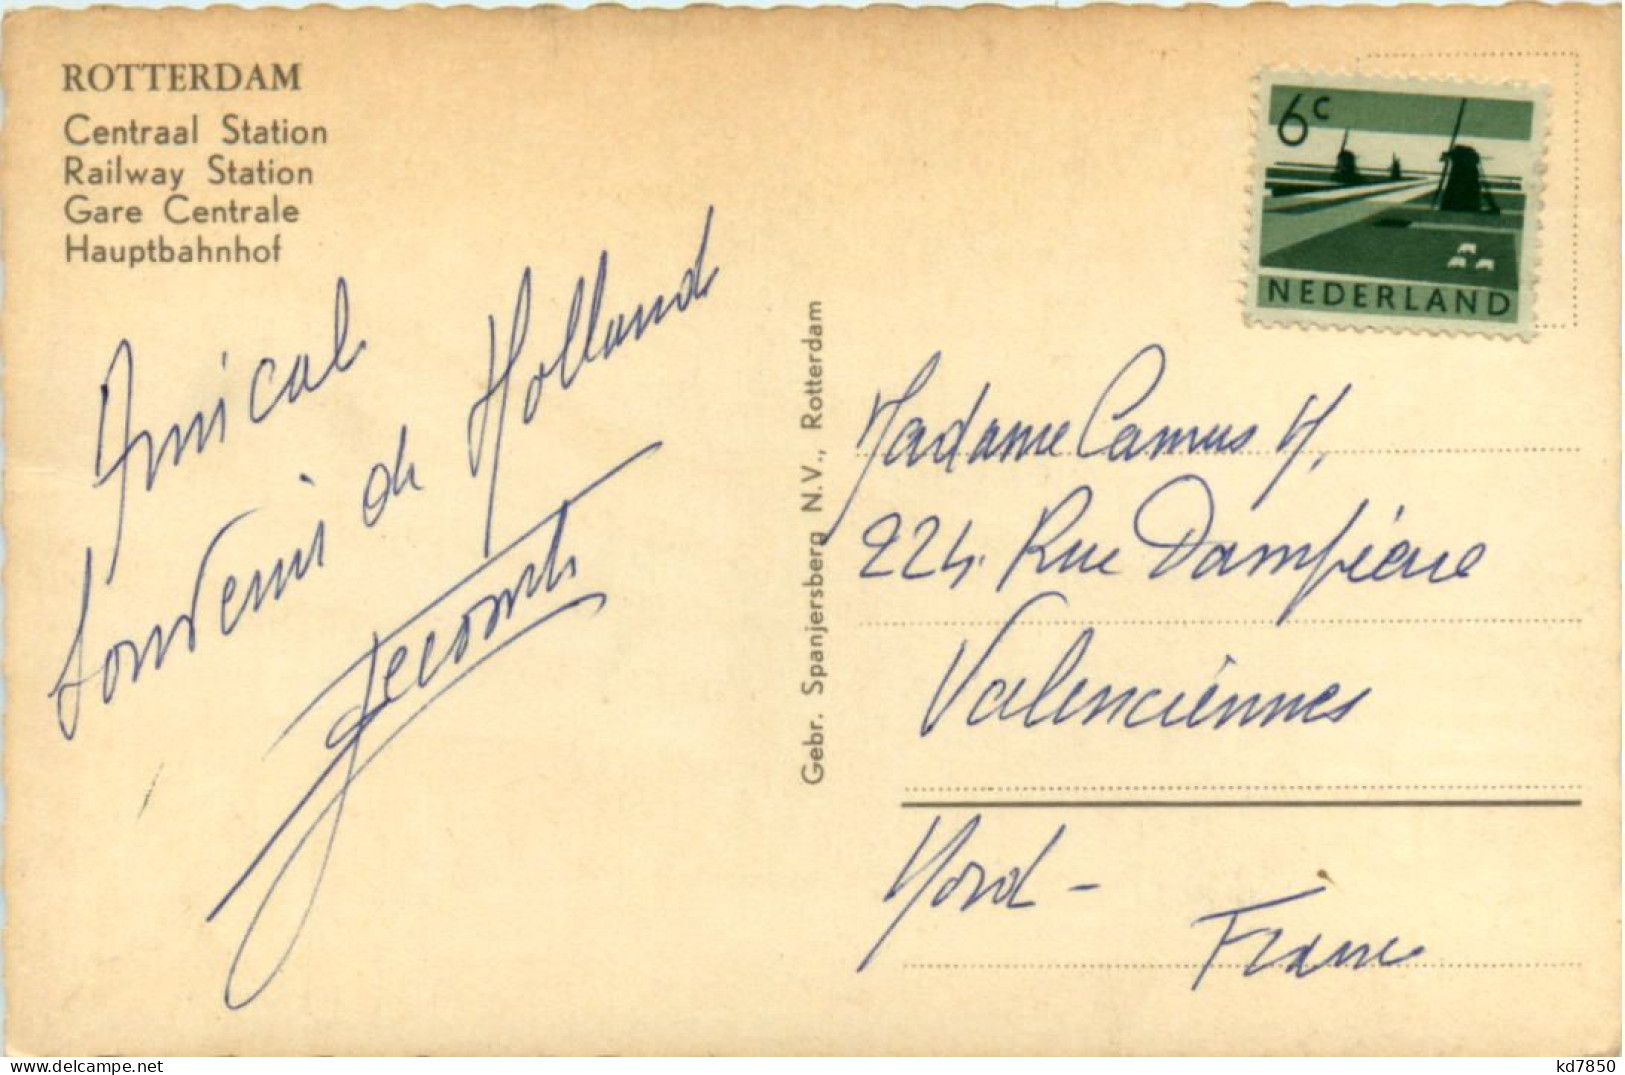 ROTTERDAM
Centraal Station
Railway Station
Gare Centrale
Hauptbahnhof
Amical
Souvenir de Holland
Gebr. Spanjersberg N.V., Rotterdam
6c
NEDERLAND
Madame Camus M.
224 Rue Dampière
Valenciennes
Nord -
France
kd7850